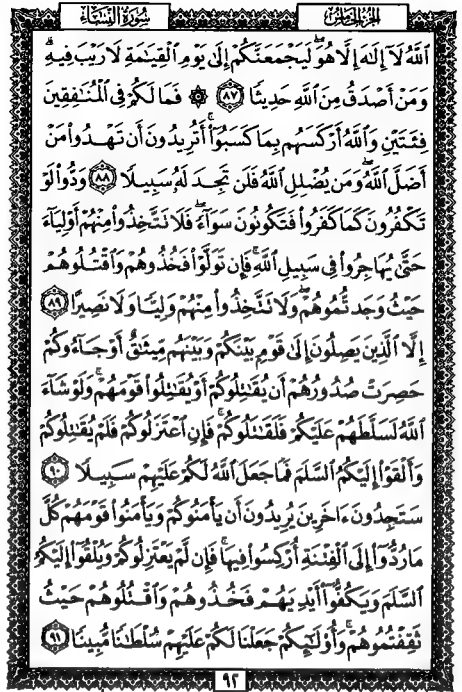 سُورَةُ النِّسَاءِ الجزء الخامس
ٱللَّهُ لَآ إِلَٰهَ إِلَّا هُوَۚ لَيَجْمَعَنَّكُمْ إِلَىٰ يَوْمِ ٱلْقِيَٰمَةِ لَا رَيْبَ فِيهِۗ
وَمَنْ أَصْدَقُ مِنَ ٱللَّهِ حَدِيثًا ٨٧ ۞ فَمَا لَكُمْ فِى ٱلْمُنَٰفِقِينَ
فِئَتَيْنِ وَٱللَّهُ أَرْكَسَهُم بِمَا كَسَبُوٓا۟ۚ أَتُرِيدُونَ أَن تَهْدُوا۟ مَنْ
أَضَلَّ ٱللَّهُۖ وَمَن يُضْلِلِ ٱللَّهُ فَلَن تَجِدَ لَهُۥ سَبِيلًا ٨٨ وَدُّوا۟ لَوْ
تَكْفُرُونَ كَمَا كَفَرُوا۟ فَتَكُونُونَ سَوَآءًۖ فَلَا تَتَّخِذُوا۟ مِنْهُمْ أَوْلِيَآءَ
حَتَّىٰ يُهَاجِرُوا۟ فِى سَبِيلِ ٱللَّهِۚ فَإِن تَوَلَّوْا۟ فَخُذُوهُمْ وَٱقْتُلُوهُمْ
حَيْثُ وَجَدتُّمُوهُمْۖ وَلَا تَتَّخِذُوا۟ مِنْهُمْ وَلِيًّا وَلَا نَصِيرًا ٨٩
إِلَّا ٱلَّذِينَ يَصِلُونَ إِلَىٰ قَوْمٍۭ بَيْنَكُمْ وَبَيْنَهُم مِّيثَٰقٌ أَوْ جَآءُوكُمْ
حَصِرَتْ صُدُورُهُمْ أَن يُقَٰتِلُوكُمْ أَوْ يُقَٰتِلُوا۟ قَوْمَهُمْۚ وَلَوْ شَآءَ
ٱللَّهُ لَسَلَّطَهُمْ عَلَيْكُمْ فَلَقَٰتَلُوكُمْۚ فَإِنِ ٱعْتَزَلُوكُمْ فَلَمْ يُقَٰتِلُوكُمْ
وَأَلْقَوْا۟ إِلَيْكُمُ ٱلسَّلَمَ فَمَا جَعَلَ ٱللَّهُ لَكُمْ عَلَيْهِمْ سَبِيلًا ٩٠
سَتَجِدُونَ ءَاخَرِينَ يُرِيدُونَ أَن يَأْمَنُوكُمْ وَيَأْمَنُوا۟ قَوْمَهُمْ كُلَّ
مَا رُدُّوٓا۟ إِلَى ٱلْفِتْنَةِ أُرْكِسُوا۟ فِيهَاۚ فَإِن لَّمْ يَعْتَزِلُوكُمْ وَيُلْقُوٓا۟ إِلَيْكُمُ
ٱلسَّلَمَ وَيَكُفُّوٓا۟ أَيْدِيَهُمْ فَخُذُوهُمْ وَٱقْتُلُوهُمْ حَيْثُ
ثَقِفْتُمُوهُمْۚ وَأُو۟لَٰٓئِكُمْ جَعَلْنَا لَكُمْ عَلَيْهِمْ سُلْطَٰنًا مُّبِينًا ٩١
٩٢